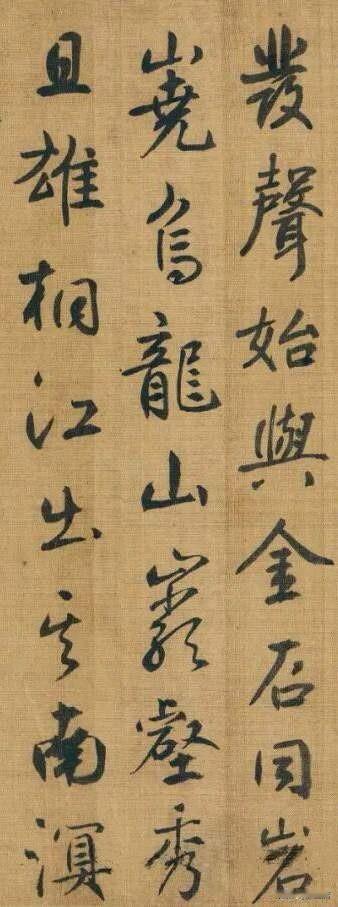 發聲始與金石同岧
嶤烏龍山巖壑秀
且雄桐江出其南溟